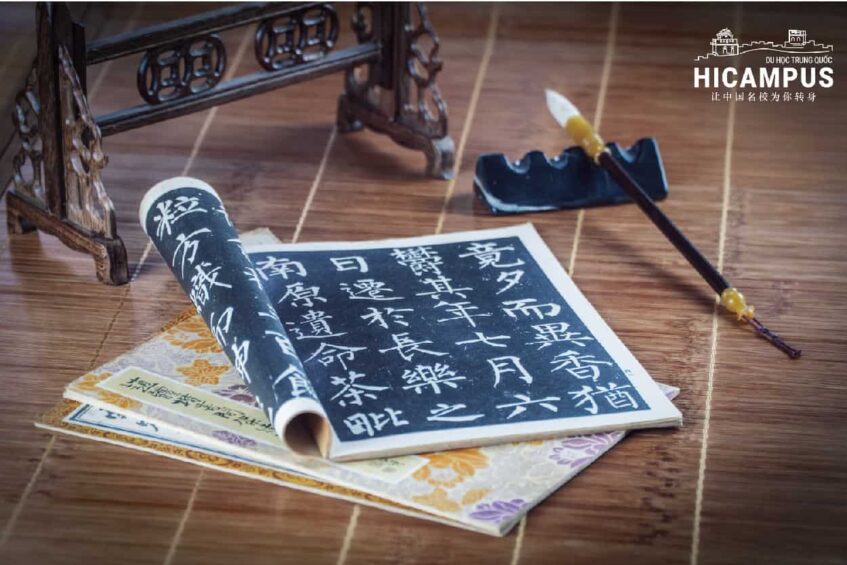 DU HỌC TRUNG QUỐC
HICAMPUS
让中国名校为你转身
竟夕而異香猶
鬱其年七月六
日遷於長樂之
南原遺命荼毗
粒方